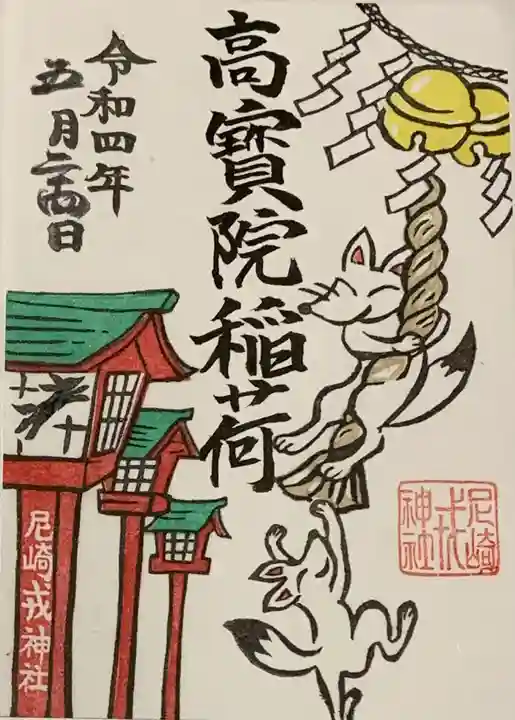 高寶院稲荷
令和四年
五月二十四日
尼崎戎神社
尼崎
戎
神社